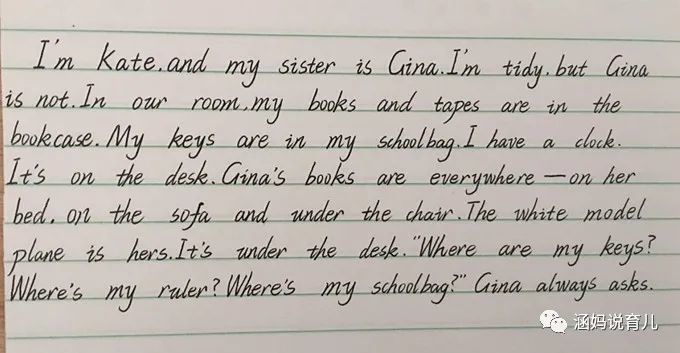 I'm Kate, and my sister is Gina. I'm tidy, but Gina
is not. In our room, my books and tapes are in the
bookcase. My keys are in my schoolbag. I have a clock.
It's on the desk. Gina's books are everywhere — on her
bed, on the sofa and under the chair. The white model
plane is hers. It's under the desk. "Where are my keys?
Where's my ruler? Where's my schoolbag?" Gina always asks.
涵妈说育儿